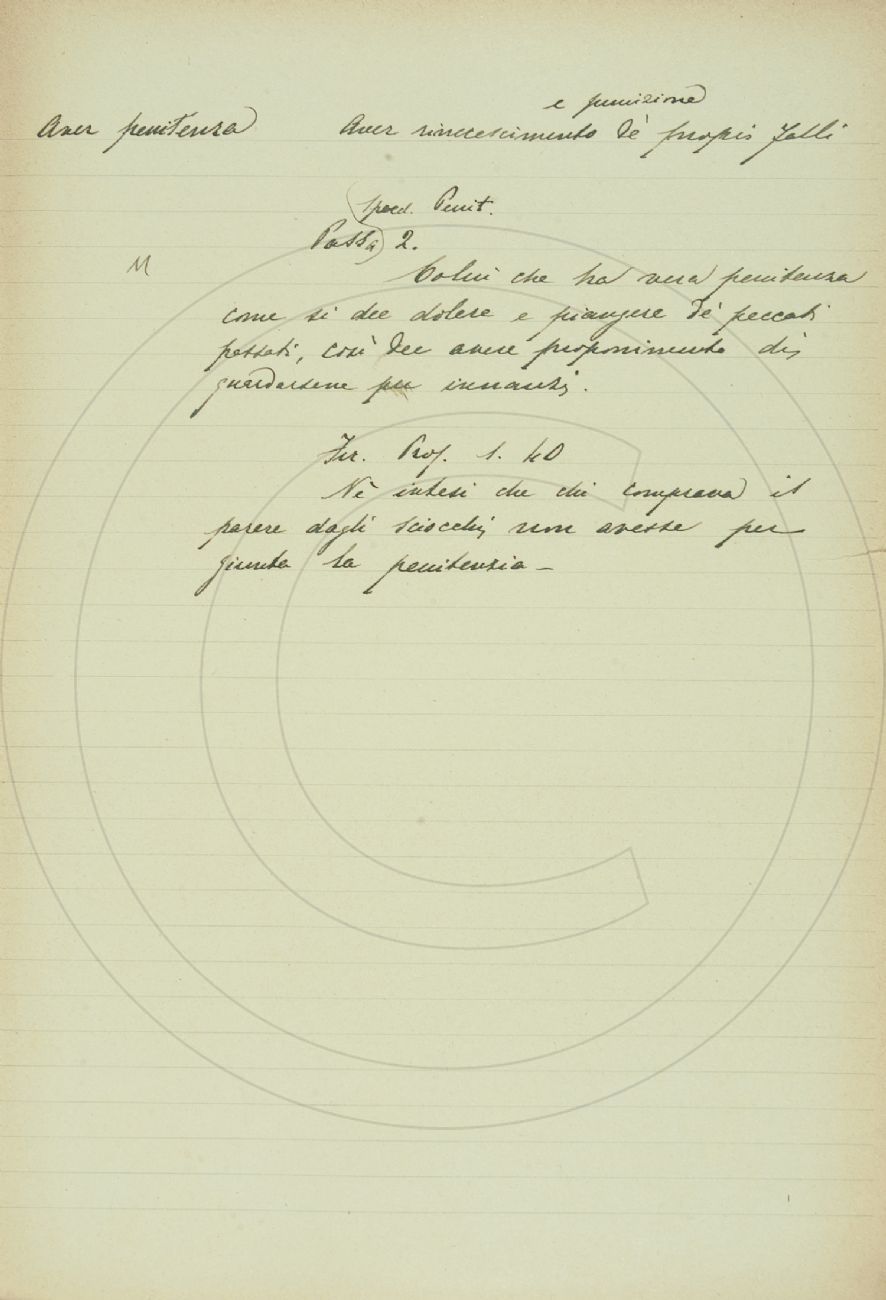 e punizione
Aver penitenza Aver rincrescimento de' propri falli
Specch. Penit.
Passa 2.
M
Colui che ha vera penitenza
come si dee dolere e piangere de' peccati
passati, così dee avere proponimento di
guardarsene per innanzi.
Fir. Pros. 1. 40
Nè intesi che chi comprava il
parere dagli sciocchi, non avesse per
giunta la penitenzia –